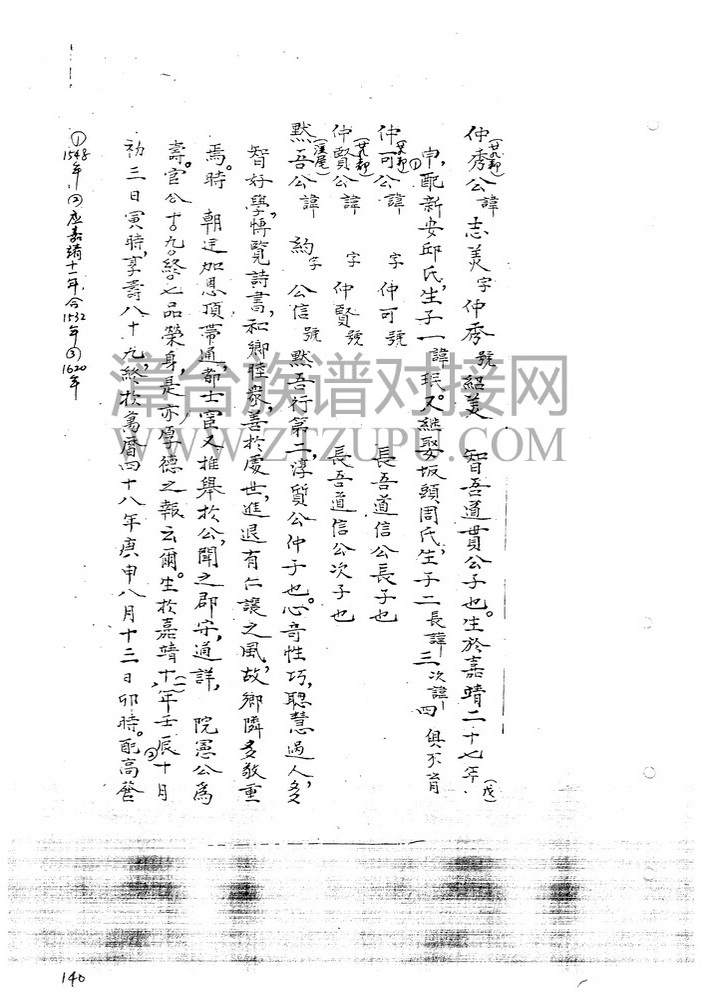 仲秀公(廿九郎)諱志美字仲秀號紹美 智吾道貫公子也。生於嘉靖二十七年(戊)
申,①配新安邱氏,生子一諱珉。又継娶坂頭周氏,生子二長諱三次諱四 俱不育
仲可公 諱 字仲可號 長吾道信公長子也
仲賢公(廿九郎)諱 字仲賢號 長吾道信公次子也
默吾公(溪尾)諱約字公信號默吾行第二,淳質公仲子也。心奇性巧,聰慧過人,多
智好學,博覽詩書,和鄉睦衆,善於處世,進退有仁讓之風,故鄉隣多敬重
焉。時 朝廷加恩頂帶,通都士宦又推舉於公,聞之郡守,通詳,院憲公為
壽官公十九終七品榮身,是亦厚德之報云爾。生於嘉靖十(一)年壬辰②十月
初三日寅時,享壽八十九,終於萬曆四十八年庚申八月十三日卯時。配高營
①1548年 ②应嘉靖十一年,合1532年 ③1620年
漳台族谱对接网
WWW.ZTZUPU.COM
140